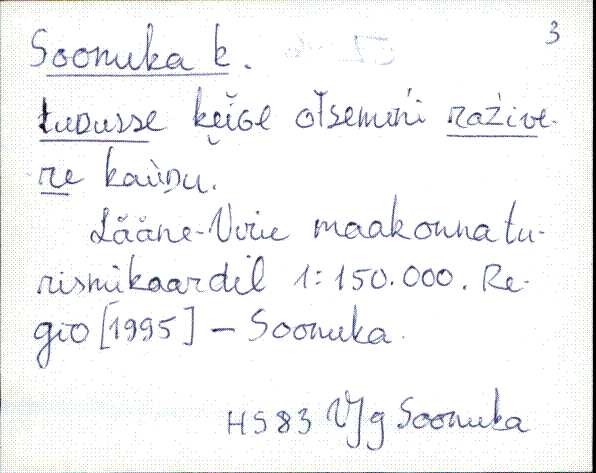 3
Soonuka k.
tuDusse keiGe otsemini ražive-
re kauDu.
Lääne-Viru maakonna tu-
rismikaardil 1:150.000. Re-
gio [1995] – Soonuka.
HS 83 VJg Soonuka